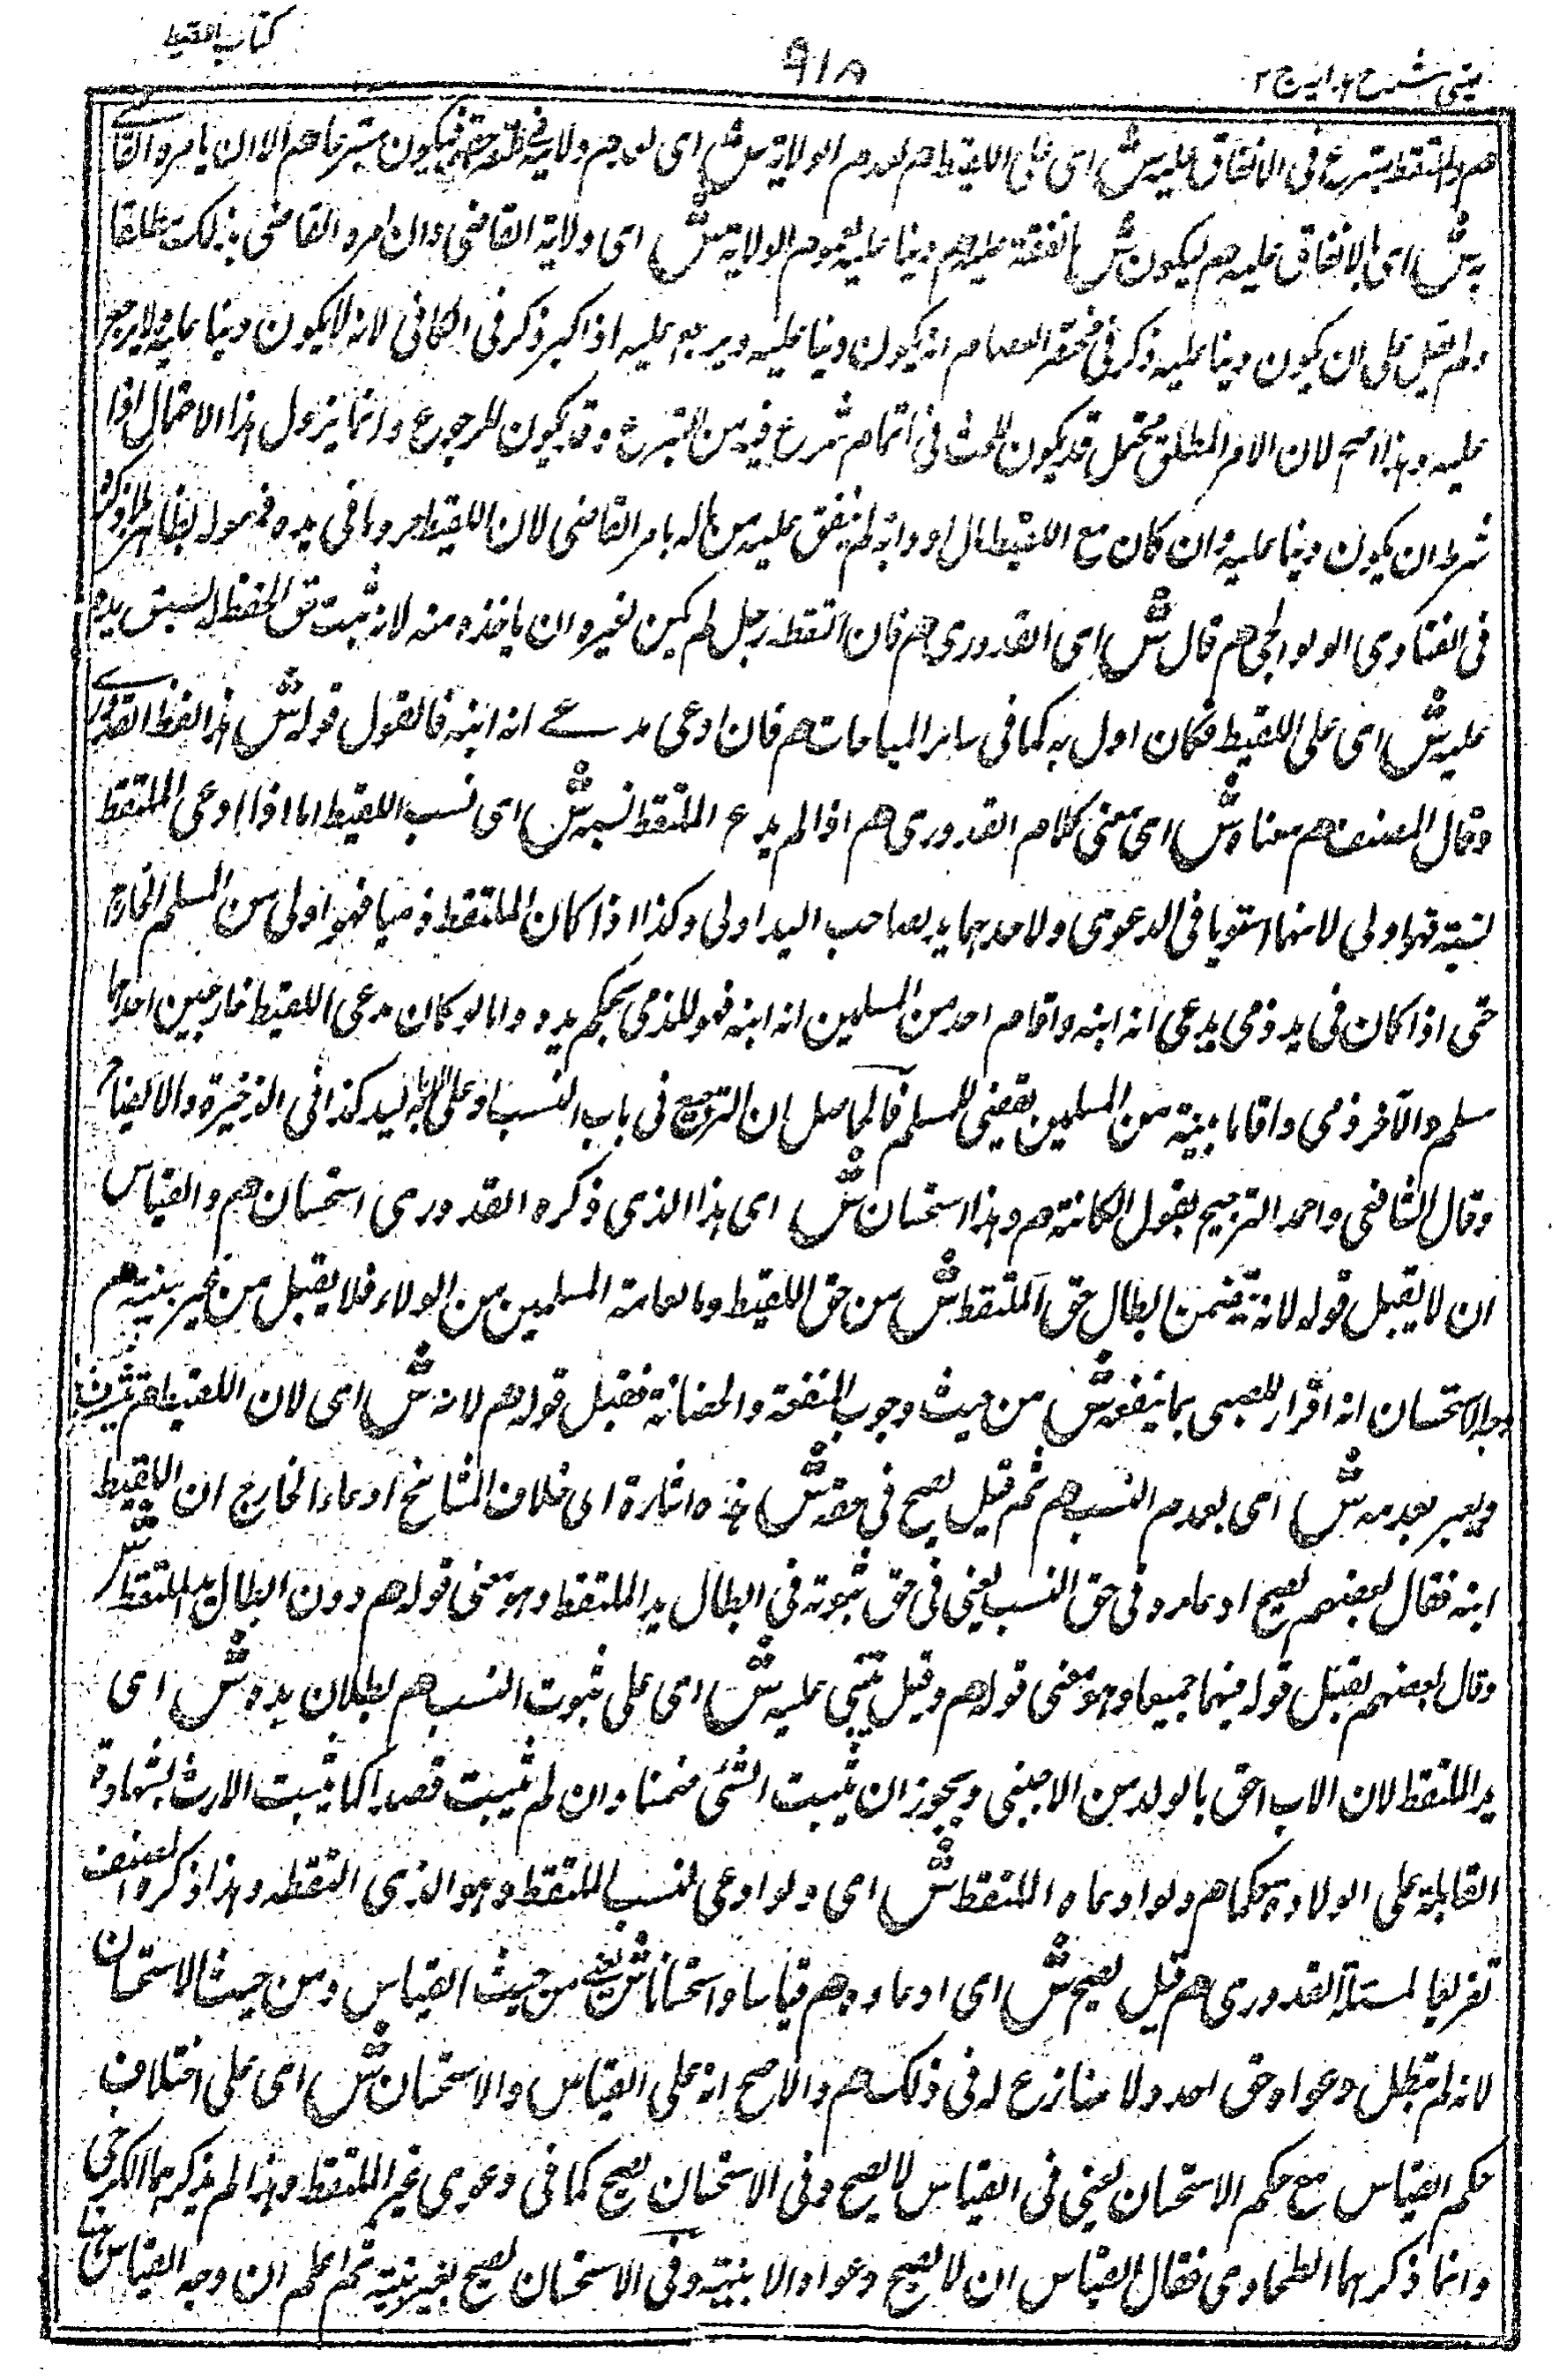 كتاب اللقيط
٩١٨
عينی شرح هدايه ج ٢
هم والملتقط متبرع فی الانفاق عليه ش ای على اللقيط هم لعدم الولاية ش ای لعدم ولايته فی حقه فيكون متبرعا هم الا ان يامره القاضے
به ش ای بالانفاق عليه هم ليكون ش النفقة عليه هم دينا عليه لعموم الولاية ش ای ولاية القاضی وان امره القاضی بذلك مطلقا
ولم يقل على ان يكون دينا عليه ذكر فی مختصر العصام انه يكون دينا عليه ويرجع عليه اذا كبر ذكر فی الكافی لانه لا يكون دينا عليه ولا يرجع
عليه وهذا اصح لان الامر المطلق محتمل قد يكون للحث فی اتمام شرع فيه من التبرع وقد يكون للرجوع وانما يزول هذا الاحتمال اذا
شرط ان يكون دينا عليه وان كان مع اللقيط مال او دابة لم ينفق عليه من ماله بامر القاضی لان اللقيط حر وما فی يده فهو له بظاهر
فی الفتاوى الولوالجی هم قال ش ای القدوری هم فان التقطه رجل لم يكن لغيره ان ياخذه منه لانه ثبت حق الحفظ له لسبق يده هم
عليه ش ای على اللقيط فكان اولى به كما فی سائر المباحات هم فان ادعى مدعے انه ابنه فالقول قوله ش هذا لفظ القدورے
وقال المصنف هم معناه ش ای معنى كلام القدوری هم اذا لم يدع الملتقط نسبه ش ای نسب اللقيط اما اذا ادعى الملتقط
نسبه فهو اولى لانهما استويا فی الدعوى ولاحدهما يد فصاحب اليد اولى وكذا اذا كان الملتقط ذميا فهو اولى من المسلم الخارج
حتى اذا كان فی يد ذمی يدعی انه ابنه واقام احد من المسلمين انه ابنه فهو للذمی بحكم يده واما لو كان مدعی اللقيط خارجين احدهما
مسلم والآخر ذمی واقاما بينة من المسلمين يقضى للمسلم فالحاصل ان الترجيح فی باب النسب اولا لليد كذا فی الذخيرة والايضاح
وقال الشافعی واحمد الترجيح بقول القافة هم وهذا استحسان ش ای هذا الذی ذكره القدوری استحسان هم والقياس
ان لا يقبل قوله لانه يتضمن ابطال حق الملتقط ش من حق اللقيط وما لعامة المسلمين من الولاء فلا يقبل من غير بينة هم
وجه الاستحسان انه اقرار للصبی بما ينفعه ش من حيث وجوب النفقة والحضانة فقبل قوله هم لانه ش ای لان اللقيط هم يتشرف بالنسب
ويعير بعدمه ش ای بعدم النسب هم ثم قيل يصح فی حقه ش هذه اشارة الى خلاف المشائخ ادعاء الخارج ان اللقيط
ابنه فقال بعضهم يصح ادعاءه فی حق النسب يعنی فی حق ثبوته فی ابطال يد الملتقط وهو معنى قوله هم دون ابطال يد الملتقط ش
وقال بعضهم يقبل قوله فيهما جميعا وهو معنى قوله هم وقيل يبتنی عليه ش ای على ثبوت النسب هم بطلان يده ش ای
يد الملتقط لان الاب احق بالولد من الاجنبی ويجوز ان يثبت الشئ ضمنا وان لم يثبت قصدا كما يثبت الارث بشهادة
القابلة على الولادة حكما هم ولو ادعاه الملتقط ش ای ولو ادعى نسب الملتقط وهو الذی التقطه وهذا ذكره المصنف
تفريعا لمسئلة القدوری هم قيل يصح ش ای ادعاءه هم قياسا واستحسانا ش يعنے من حيث القياس ومن حيث الاستحسان
لانه لم يبطل دعواه حق احد ولا منازع له فی ذلك هم والاصح انه على القياس والاستحسان ش ای على اختلاف
حكم القياس مع حكم الاستحسان يعنی فی القياس لا يصح وفی الاستحسان يصح كما فی دعوى غير الملتقط وهذا لم يذكرهما الكرخی
وانما ذكرهما الطحاوی فقال القياس ان لا يصح دعواه الا ببينة وفی الاستحسان يصح بغير بينة ثم اعلم ان وجه القياس هنا